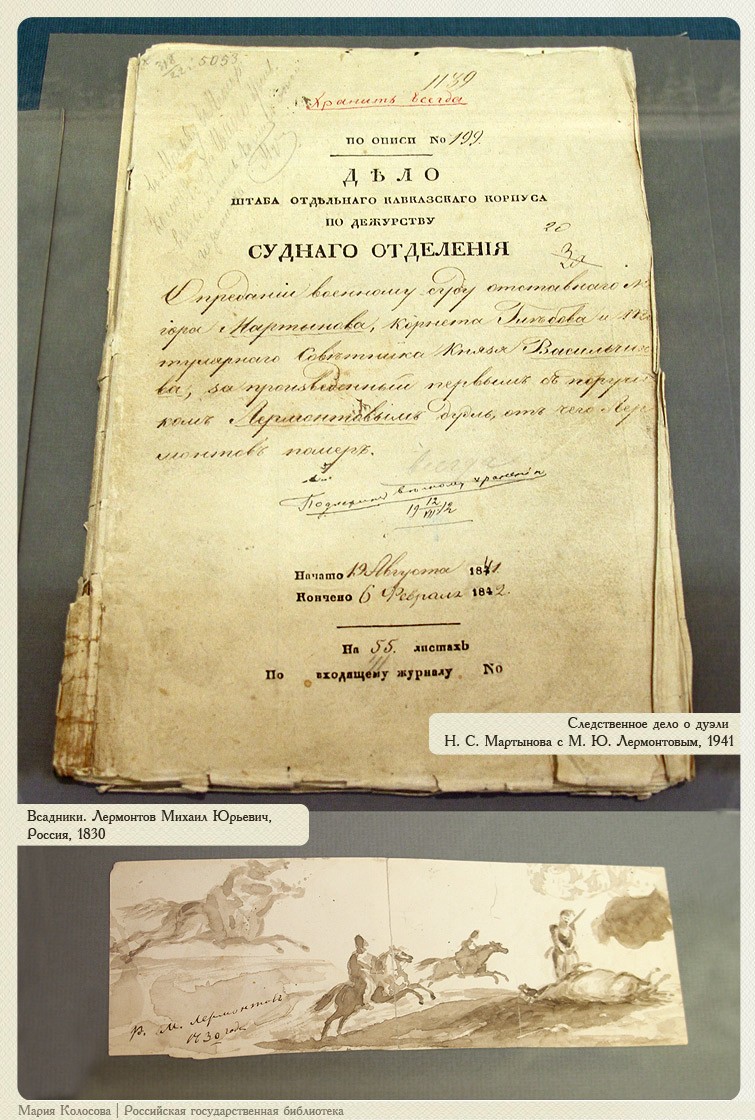 318/22: 5053
1139
Хранить всегда
по описи No 199.
ДѢЛО
ШТАБА ОТДѢЛЬНАГО КАВКАЗСКАГО КОРПУСА
ПО ДЕЖУРСТВУ
СУДНАГО ОТДЕЛЕНІЯ
20
3/20
О преданіи военному суду отставнаго Ма
іора Мартынова, Корнета Глѣбова и Ти
тулярнаго Совѣтника Князя Васильчико
ва, за произведенный первымъ съ поручи
комъ Лермонтовымъ дуэль, отъ чего Лер
монтовъ померъ.
всегда
Подлежит вѣчному хранению
19 12/VII 12
Начато 19 Августа 1841.
Кончено 6 Февраля 1842.
На 55. листахъ
По входящему журналу No
Следственное дело о дуэли
Н. С. Мартынова с М. Ю. Лермонтовым, 1941
Всадники. Лермонтов Михаил Юрьевич,
Россия, 1830
М. Лермонтовъ
1830 года
Мария Колосова | Российская государственная библиотека